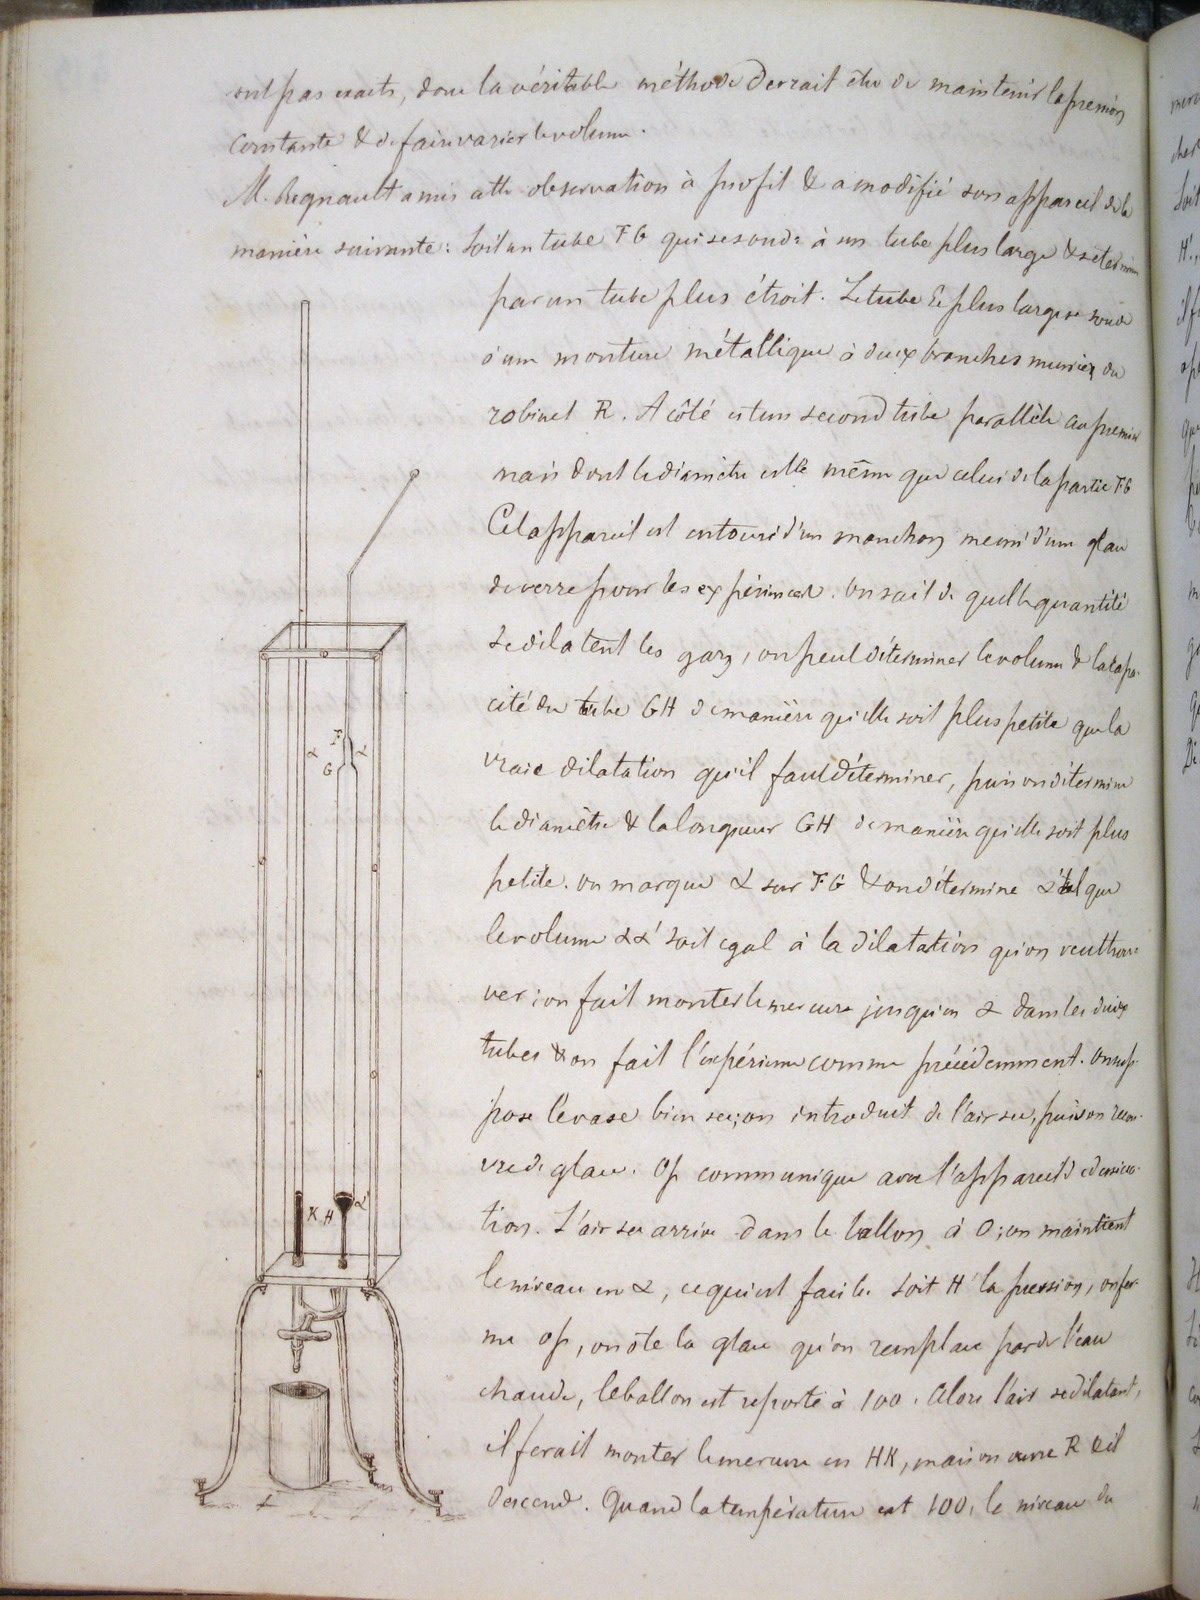 sont pas exacts, donc la véritable méthode devrait être de maintenir la pression
constante & de faire varier le volume.
M. Regnault a mis cette observation à profit & a modifié son appareil de la
manière suivante: Soit un tube FG qui se soude à un tube plus large & se termine
par un tube plus étroit. Le tube le plus large se soude
à une monture métallique à deux branches munies du
robinet R. A côté est un second tube parallèle au premier
mais dont le diamètre est le même que celui de la partie FG
Cet appareil est entouré d'un manchon muni d'une glace
de verre pour les expériences. On sait de quelle quantité
se dilatent les gaz, on peut déterminer le volume & la capa-
cité du tube GH de manière qu'elle soit plus petite que la
vraie dilatation qu'il faut déterminer, puis on détermine
le diamètre & la longueur GH de manière qu'elle soit plus
petite. On marque α sur FG & on détermine α' tel que
le volume αα' soit egal à la dilatation qu'on veut trou-
ver; on fait monter le mercure jusqu'en α dans les deux
tubes & on fait l'expérience comme précédemment. On sup-
pose le vase bien sec; on introduit de l'air sec, puis on recou-
vre de glace. Op communique avec l'appareil de dessicca-
tion. L'air sec arrive dans le ballon à 0; on maintient
le niveau en α, ce qui est facile. Soit H la pression, on fer-
me op, on ôte la glace qu'on remplace par de l'eau
chaude, le ballon est reporté à 100. Alors l'air se dilatant,
il ferait monter le mercure en HK, mais on ouvre R & il
descend. Quand la température est 100, le niveau du
F
α
α
G
K
H
α'